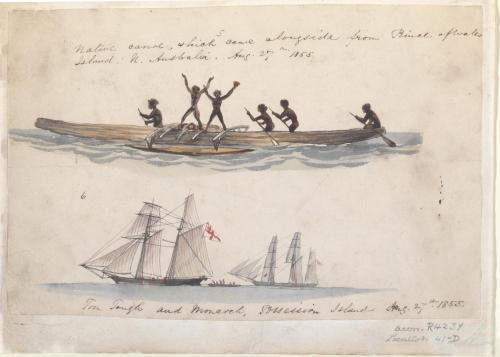 Native canoe, which came alongside from Prince of Wales
Island. N. Australia. Aug. 27th 1855.
5
6
Tom Tough and Monarch, Possession Island Aug. 27th 1855.
accn. R4239
Location 41-D